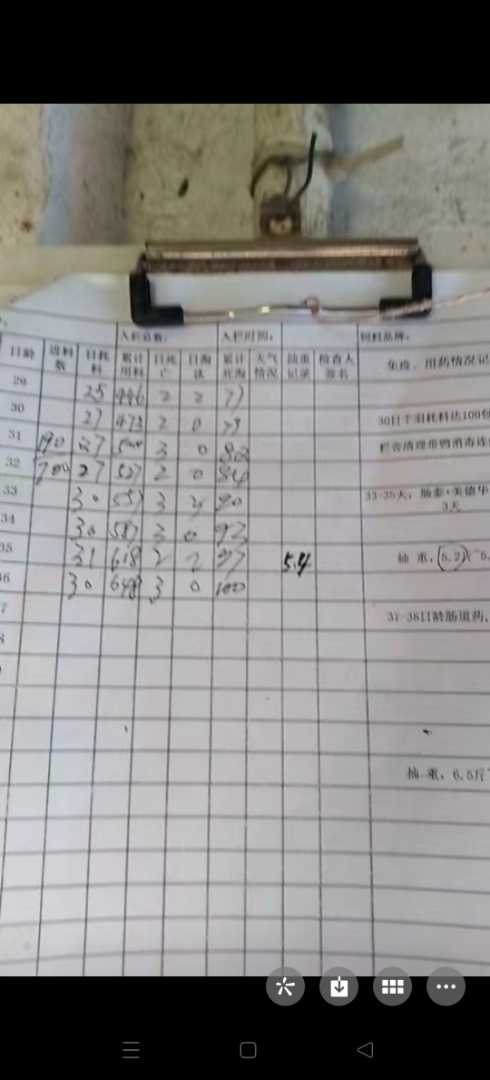 入栏总数: 入栏时间: 饲料品牌:
日龄 进料数 日耗料 累计用料 日死亡 日淘汰 累计死淘 天气情况 抽重记录 检查人签名 免疫、用药情况记
29 25 446 2 2 77
30 27 473 2 0 79 30日千羽耗料达100包
31 190 27 500 3 0 82
32 700 27 527 2 0 84
33 30 557 3 3 90 33-35天,肠泰+美德华 3天
34 30 587 3 0 93
35 31 618 2 2 97 5.4 抽重,(5.2)
36 30 648 3 0 100
37-38日龄肠道药,
抽重,6.5斤